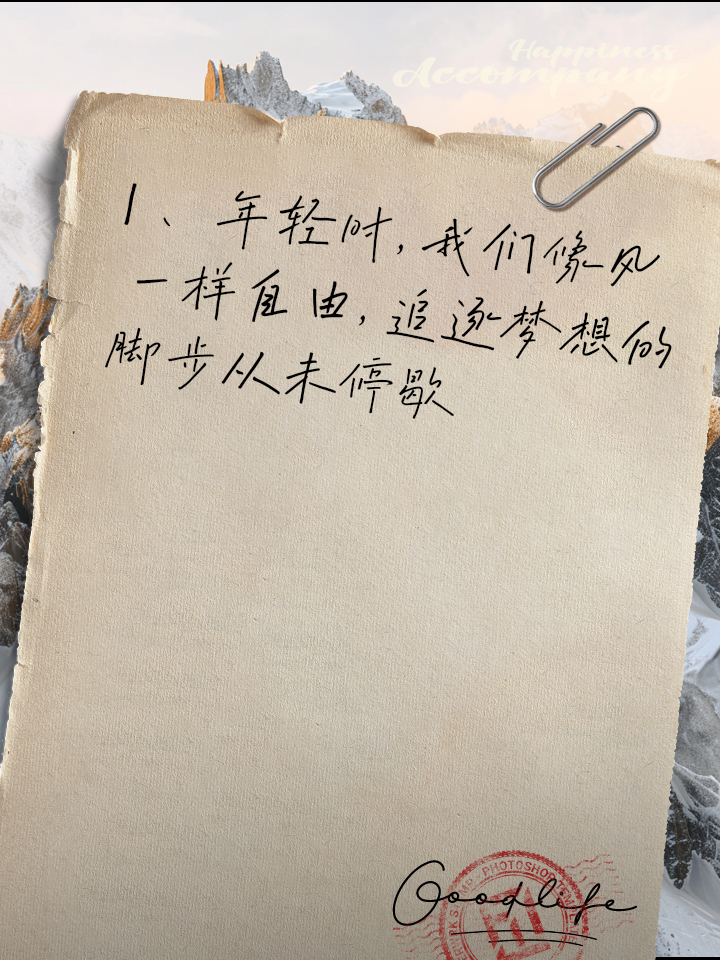 Happiness
Accompany
1、年轻时，我们像风
一样自由，追逐梦想的
脚步从未停歇
PHOTOSHOP
Goodlife